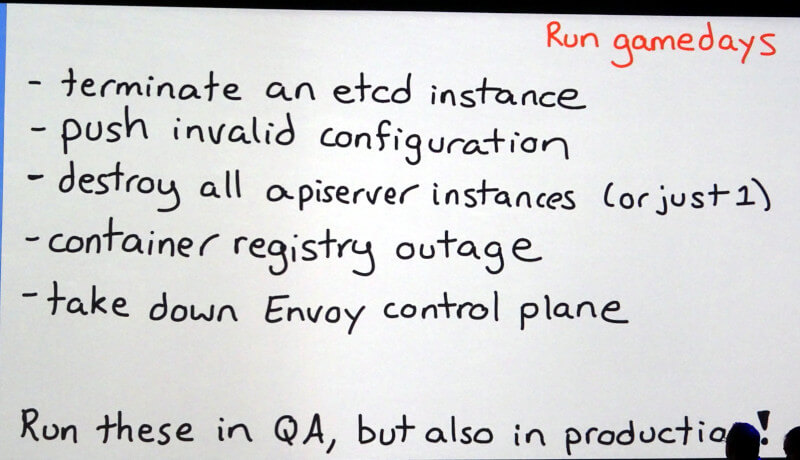 Run gamedays
- terminate an etcd instance
- push invalid configuration
- destroy all apiserver instances (or just 1)
- container registry outage
- take down Envoy control plane
Run these in QA, but also in production!